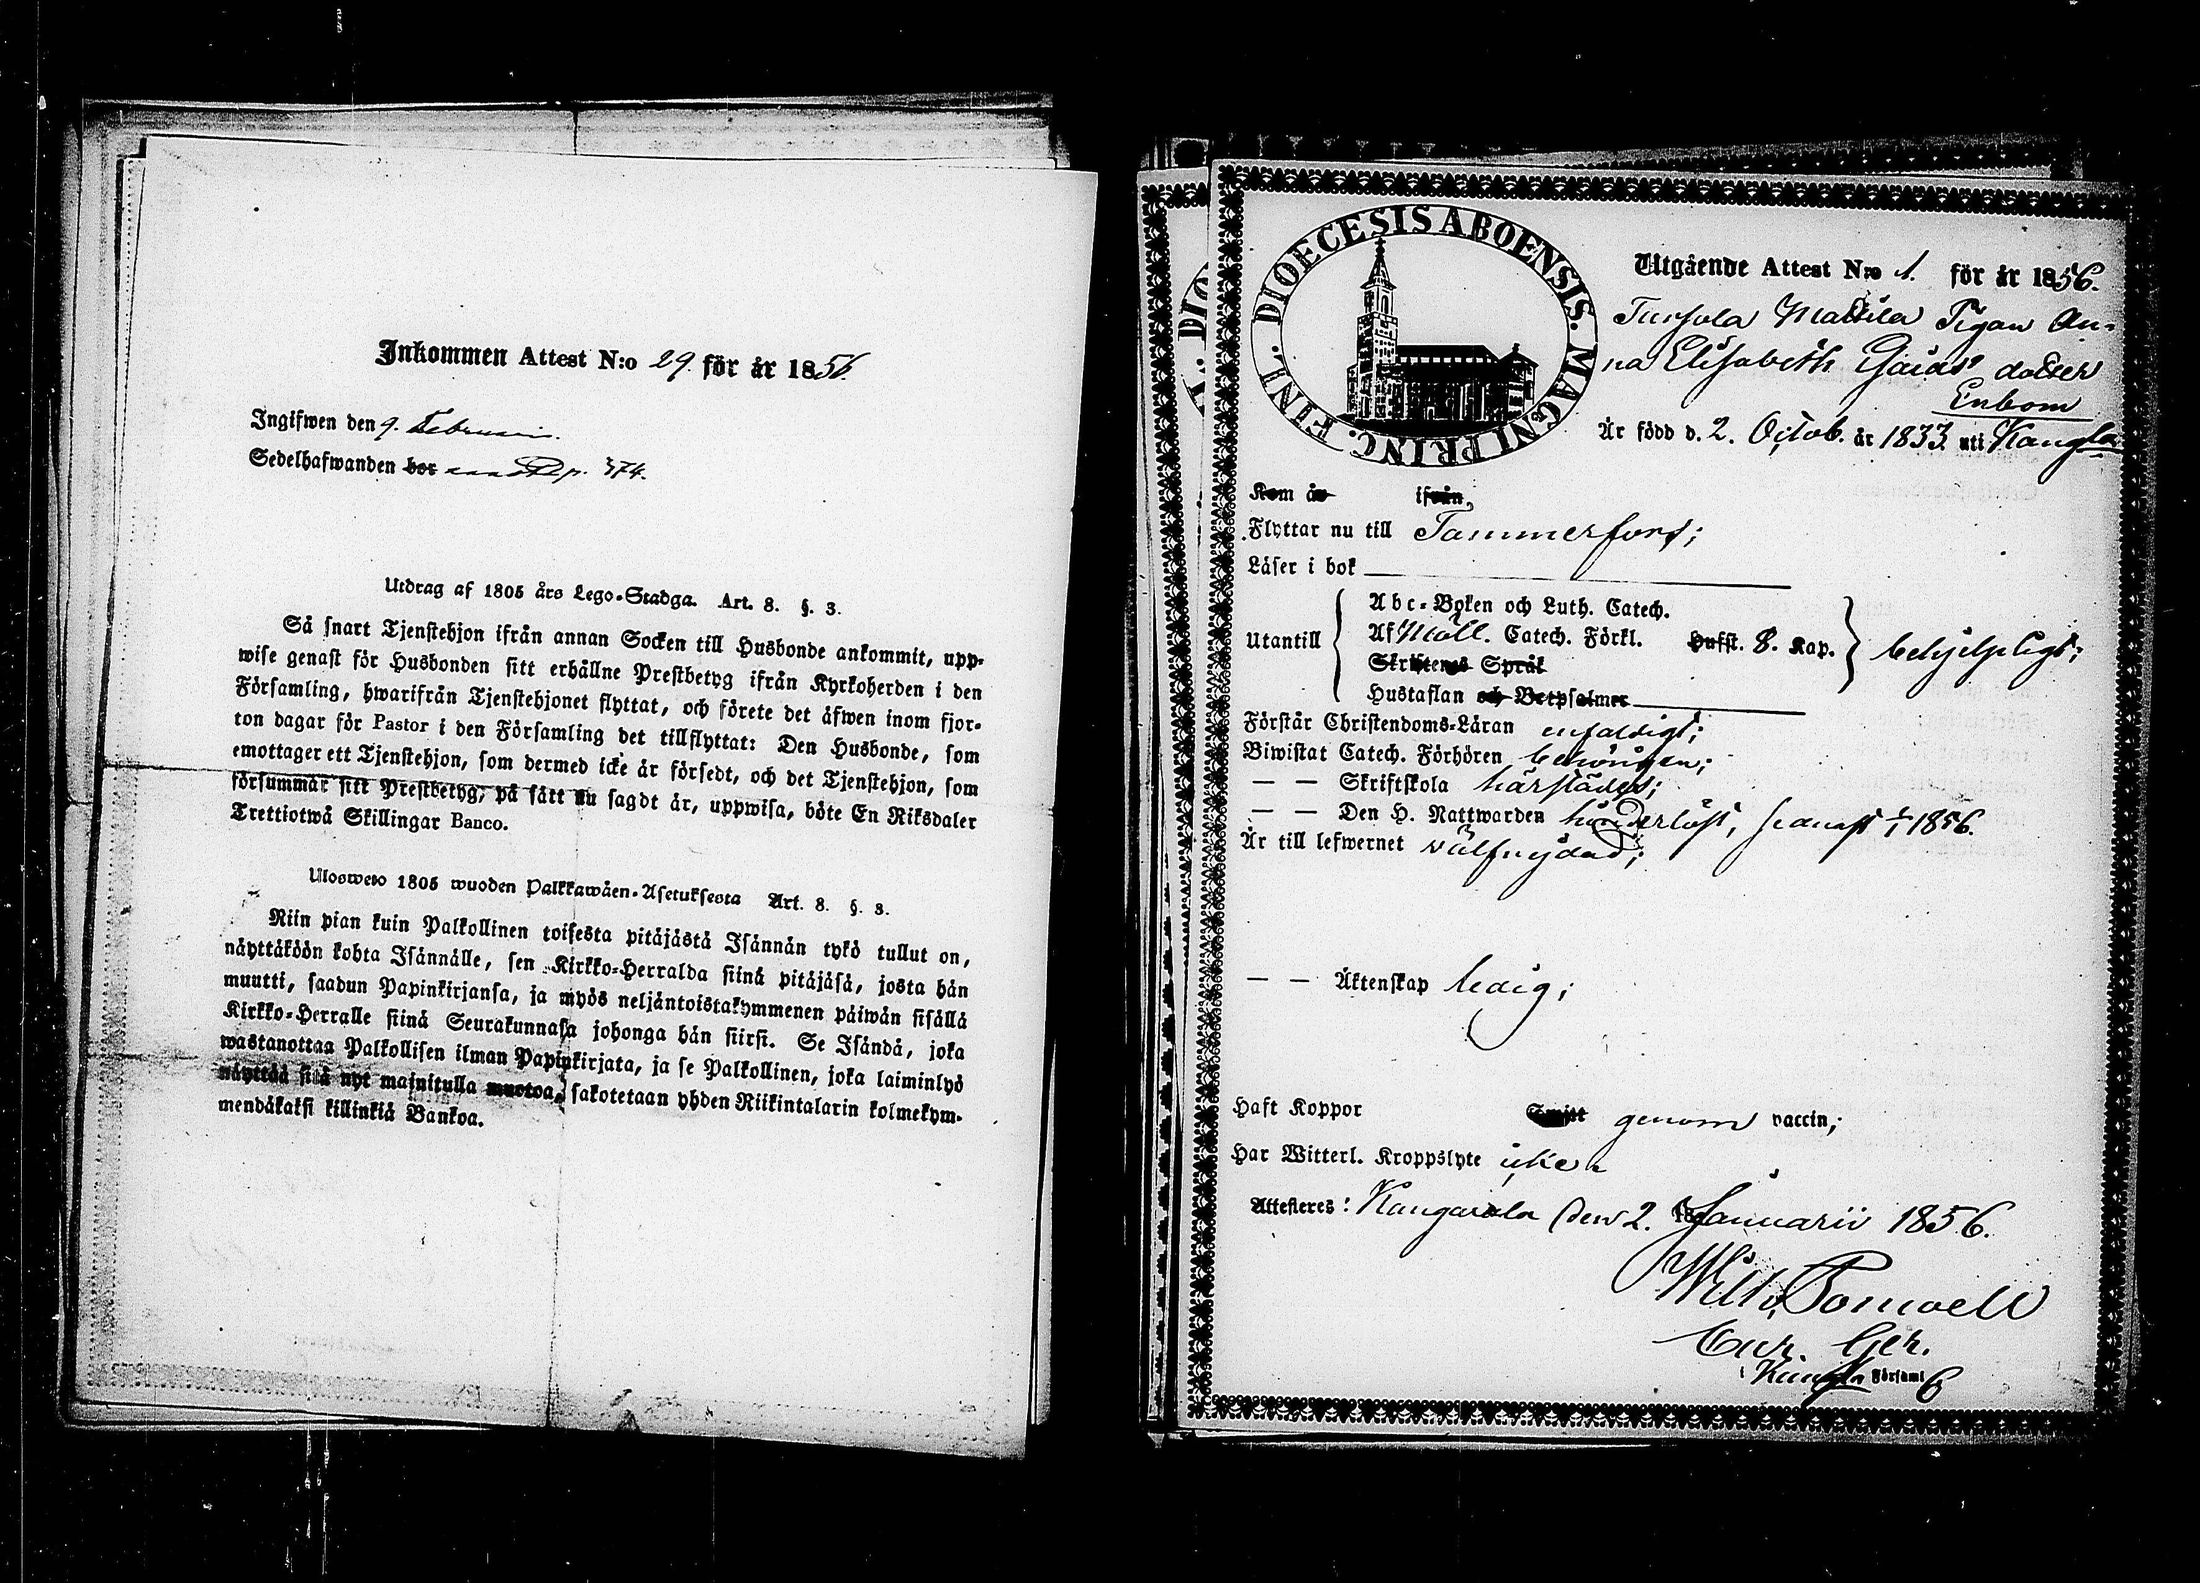 Inkommen Attest N:o 29. för år 1856.
Ingifwen den 9. Februari.
Sedelhafwanden bor p. 374.
Utdrag af 1805 års Lego-Stadga. Art. 8. §. 3.
Så snart Tjenstehjon ifrån annan Socken till Husbonde ankommit, upp-
wise genast för Husbonden sitt erhållne Prestbetyg ifrån Kyrkoherden i den
Församling, hwarifrån Tjenstehjonet flyttat, och förete det äfwen inom fjor-
ton dagar för Pastor i den Församling det tillflyttat: Den Husbonde, som
emottager ett Tjenstehjon, som dermed icke är försedt, och det Tjenstehjon, som
försummar sitt Prestbetyg, på sätt nu sagdt är, uppwisa, böte En Riksdaler
Trettiotwå Skillingar Banco.
Ulosweto 1805 wuoden Palkkawäen-Asetuksesta Art. 8. §. 3.
Niin pian kuin Palkollinen toisesta pitäjästä Isännän tykö tullut on,
näyttäköön kohta Isännälle, sen Kirkko-Herralda siinä pitäjäsä, josta hän
muutti, saadun Papinkirjansa, ja myös neljäntoistakymmenen päiwän sisällä
Kirkko-Herralle siinä Seurakunnasa johonga hän siirsi. Se Isändä, joka
wastanottaa Palkollisen ilman Papinkirjata, ja se Palkollinen, joka laiminlyö
näyttää sitä nyt mainitulla muotoa, sakotetaan yhden Riikintalarin kolmekym-
mendäkaksi killinkiä Bankoa.
DIOECESIS ABOENSIS. MAGNI PRINC. FINL.
Utgående Attest N:o 1. för år 1856.
Mattila Pigan An-
na Elisabeth Gaias dotter
Enbom
Är född d. 2. Octob. år 1833 uti Kangla
Kom år ifrån
Flyttar nu till Tammerfors;
Läser i bok
Utantill
Abc-Boken och Luth. Catech.
Af Möll. Catech. Förkl. Hufst. 8. Kap.
Skriftenes Språk
Hustaflan och Botpsalmer
behjelpligt;
Förstår Christendoms-Läran enfaldigt;
Biwistat Catech. Förhören behörigen;
— — Skriftskola härstädes;
— — Den H. Nattwarden hinderlöst, senast 1/1 1856.
Är till lefwernet välfrejdad;
— — Äktenskap ledig;
Haft Koppor Smitt genom vaccin;
Har Witterl. Kroppslyte icke
Attesteres: Kangasala den 2. Januarii 1856.
Wilh.
Kangla Församl